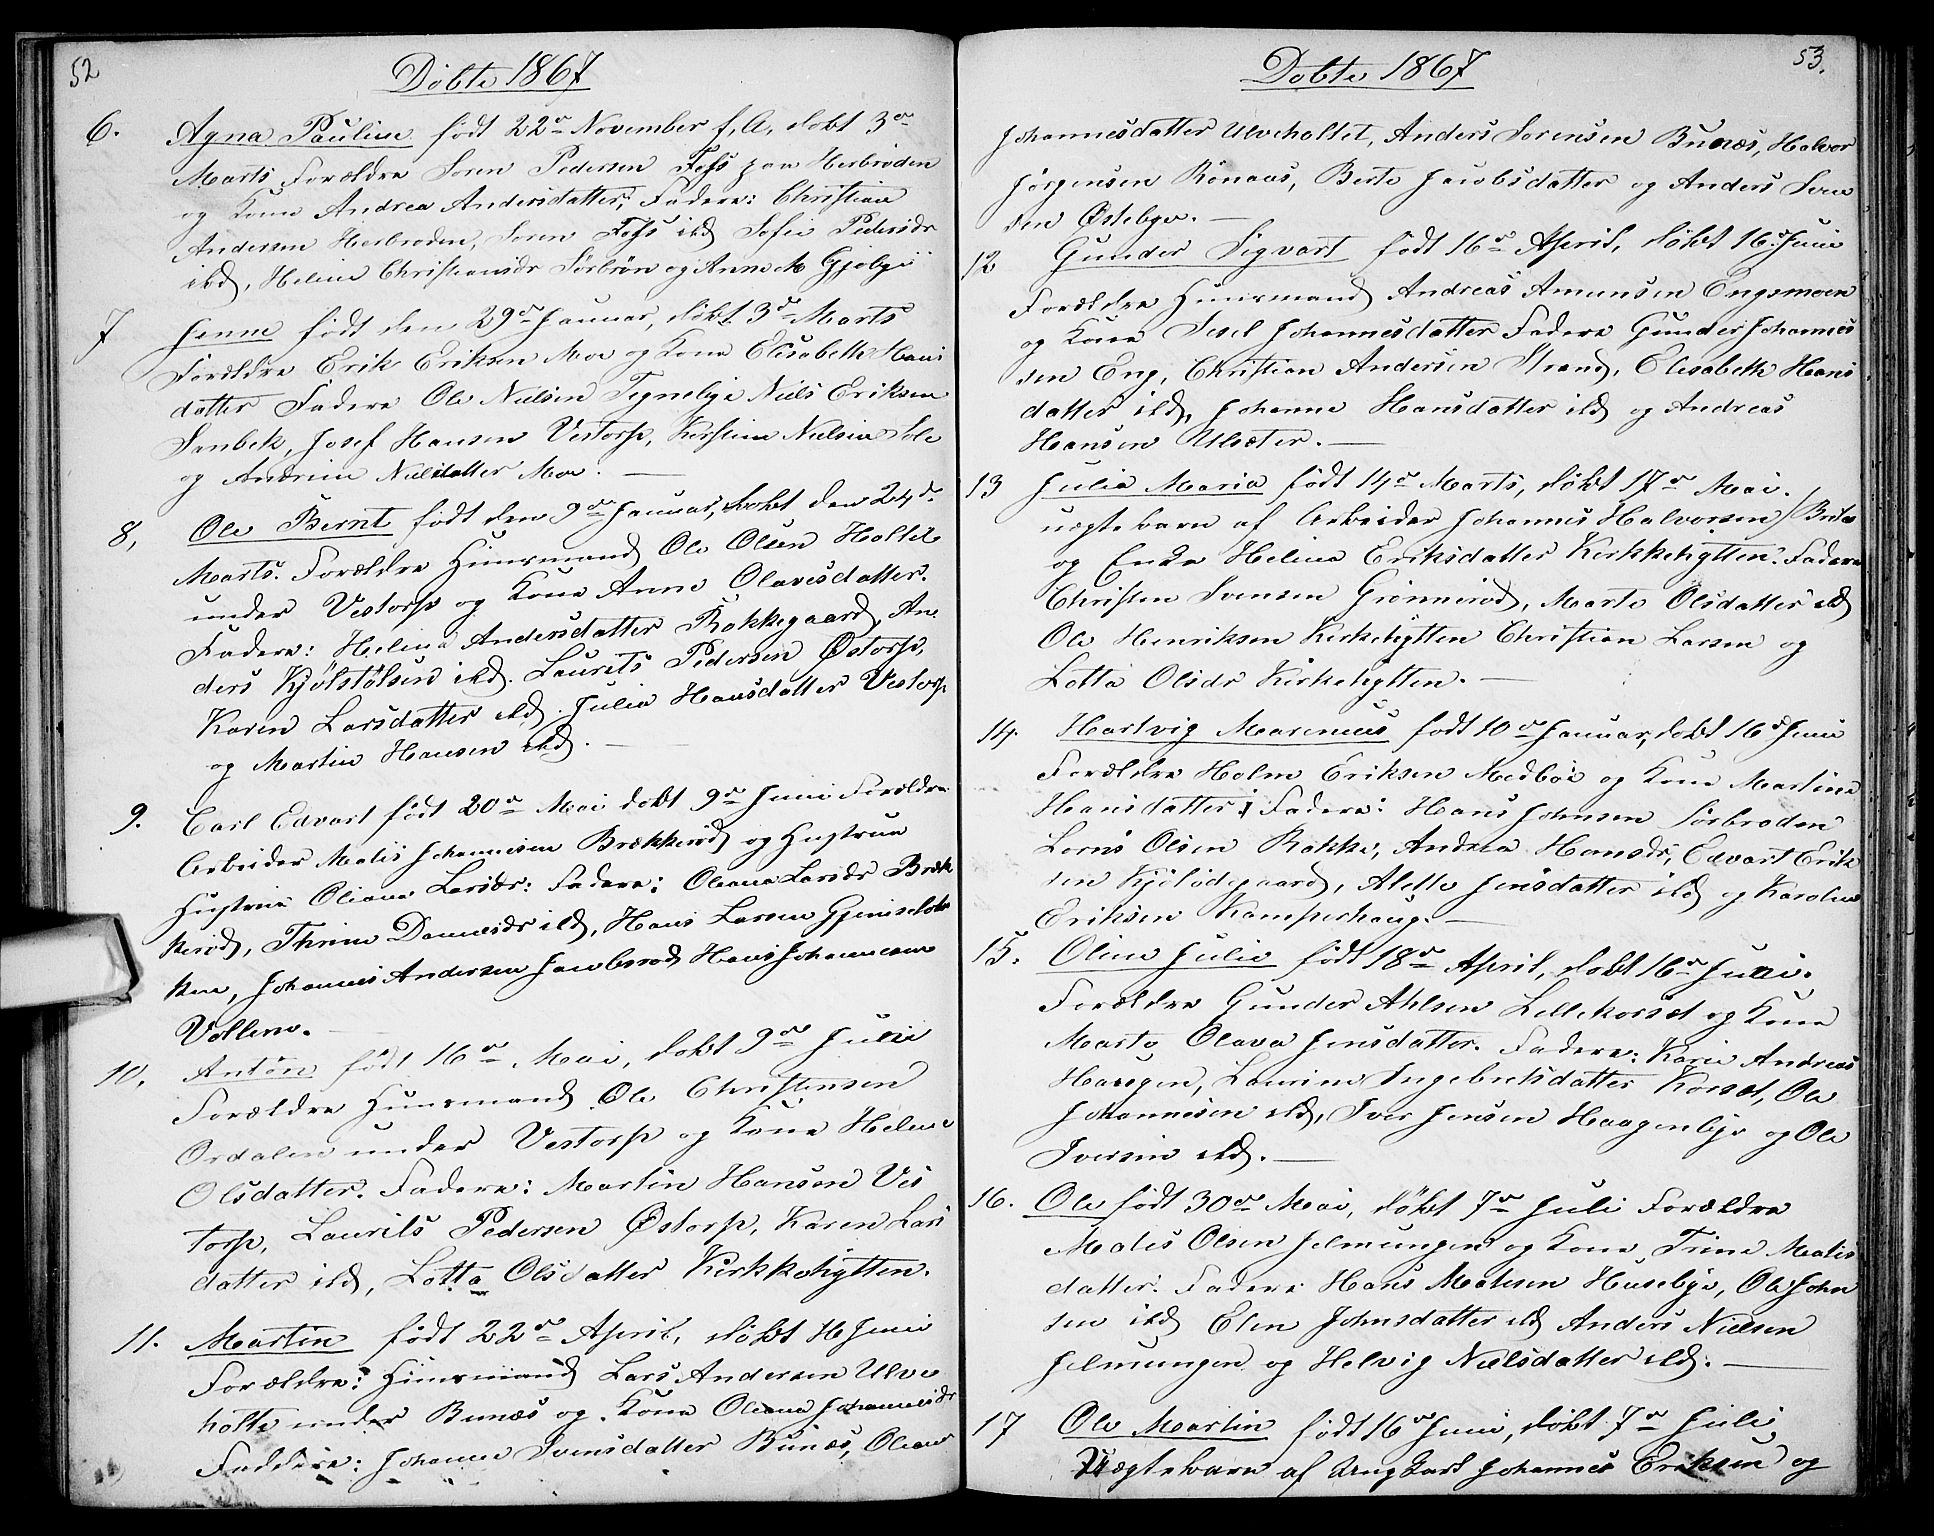 52
Döbte 1867
6. Agna Pauline födt 22de November f. A, döbt 3de
Marts Forældre Soren Pedersen Foss paa Herbröden
og Kone Andrea Andersdatter, Fadere: Christian
Andersen Herbroden, Soren Foss ibd Sofie Pedersdr
ibd, Helene Christiansdr Sörbrön og Anne M Gjeby
7 Jenne födt den 29de Januar, döbt 3de Marts
Forældre Erik Eriksen Moe og Kone Elisabeth Hans
datter Fadere Ole Nielsen Tegneby Niels Eriksen
Senbek, Josef Hansen Vestorp, Kirstine Nielsen
og Andrine Nielsdatter Moe. —
8, Ole Bernt födt den 9de Januar, döbt den 24de
Marts. Forældre Huusmand Ole Olsen Holtet
under Vestorp og Kone Anne Olavesdatter.
Fadere: Helena Andersdatter Rokkegaard, An-
ders Kjölstölsen ibd. Laurits Pedersen Östorp,
Karen Larsdatter ibd. Julia Hansdatter Vestorp
og Martin Hansen ibd. —
9. Carl Edvart födt 20de Mai döbt 9de Juni Forældre
Arbeider Matis Johannesen Brækkeröd og Hustrue
Hustrue Oliana Larsdr: Fadere: Oleana Larsdr Bræk
keröd, Thrine Danielsdr ibd, Hans Larsen
Johannes Andersen Jacobsrod Hans Johannesen
Vollene. —
10, Antön födt 16de Mai, döbt 9de Juli
Forældre Huusmand Ole Christensen
Ordalen under Vestorp og Kone Helene
Olsdatter. Fadere: Martin Hansen Ves
torp, Laurits Pedersen Östorp, Karen Lars
datter ibd, Lotta Olsdatter Kirkkehytten.
11. Martin födt 22de April, döbt 16 Juni
Forældre: Huusmand Lars Andersen Ulve
holte under Bunæs og Kone Oleana Johannesdr
Faddere: Johanne Svensdatter Bunæs, Olene
53.
Döbte 1867
Johannesdatter Ulveholtet, Anders Sorensen Bunæs, Halvor
Jörgensen Rönaas, Berte Jacobsdatter og Anders Sven
sen Östebye. —
12 Gunder Sigvart födt 16de April, döbt 16d Juni
Forældre Huusmand Andreas Amunsen Engsmoen
og Kone Sesel Johannesdatter Fadere Gunder Johannes
sen Eng, Christian Andersen Strand, Elisabeth Hans
datter ibd, Johanne Hansdatter ibd og Andreas
Hansen Ulsæter. —
13 Julia Maria födt 14d Marts, döbt 17de Mai.
uægte barn af Arbeider Johannes Halvorsen
og Enke Helene Eriksdatter Kirkkehytten. Fadere
Christen Svensen Grönneröd, Marte Olsdatter ibd
Ole Henriksen Kirkehytten Christian Larsen og
Lotta Olsdr Kirkehytten. —
14. Hartvig Marenius födt 10de Januar, döbt 16d Juni
Forældre Holm Eriksen Medböe og Kone Martine
Hansdatter; Fadere: Hans Johnsen Sörbroden
Lorns Olsen Rokke, Andrea Hansdr, Edvart Erik
sen Kjölödegaard, Alette Jensdatter ibd og Karoline
Eriksen Kamperhaug. —
15. Oline Julie födt 18de April, döbt 16de Juli.
Forældre Gunder Ahlsen Lillekorsæt og Kone
Marte Olava Jensdatter. Fadere: Karie Andreas
Haagen, Laurine Ingebretsdatter Korsæt, Ole
Johannesen ibd, Iver Jensen Haagenbye og Ole
Iversen ibd. —
16. Ole födt 30de Mai, döbt 7de Juli Forældre
Matis Olsen Jelmungen og Kone Trine Matis
datter. Fadere Hans Matesen Husebye, Ole John
sen ibd Elen Johnsdatter ibd Anders Nielsen
Jelmungen og Helvig Nielsdatter ibd. —
17 Ole Martin födt 16de Juni, döbt 7de Juli
Uægte barn af Ung Karl Johannes Eriksen og